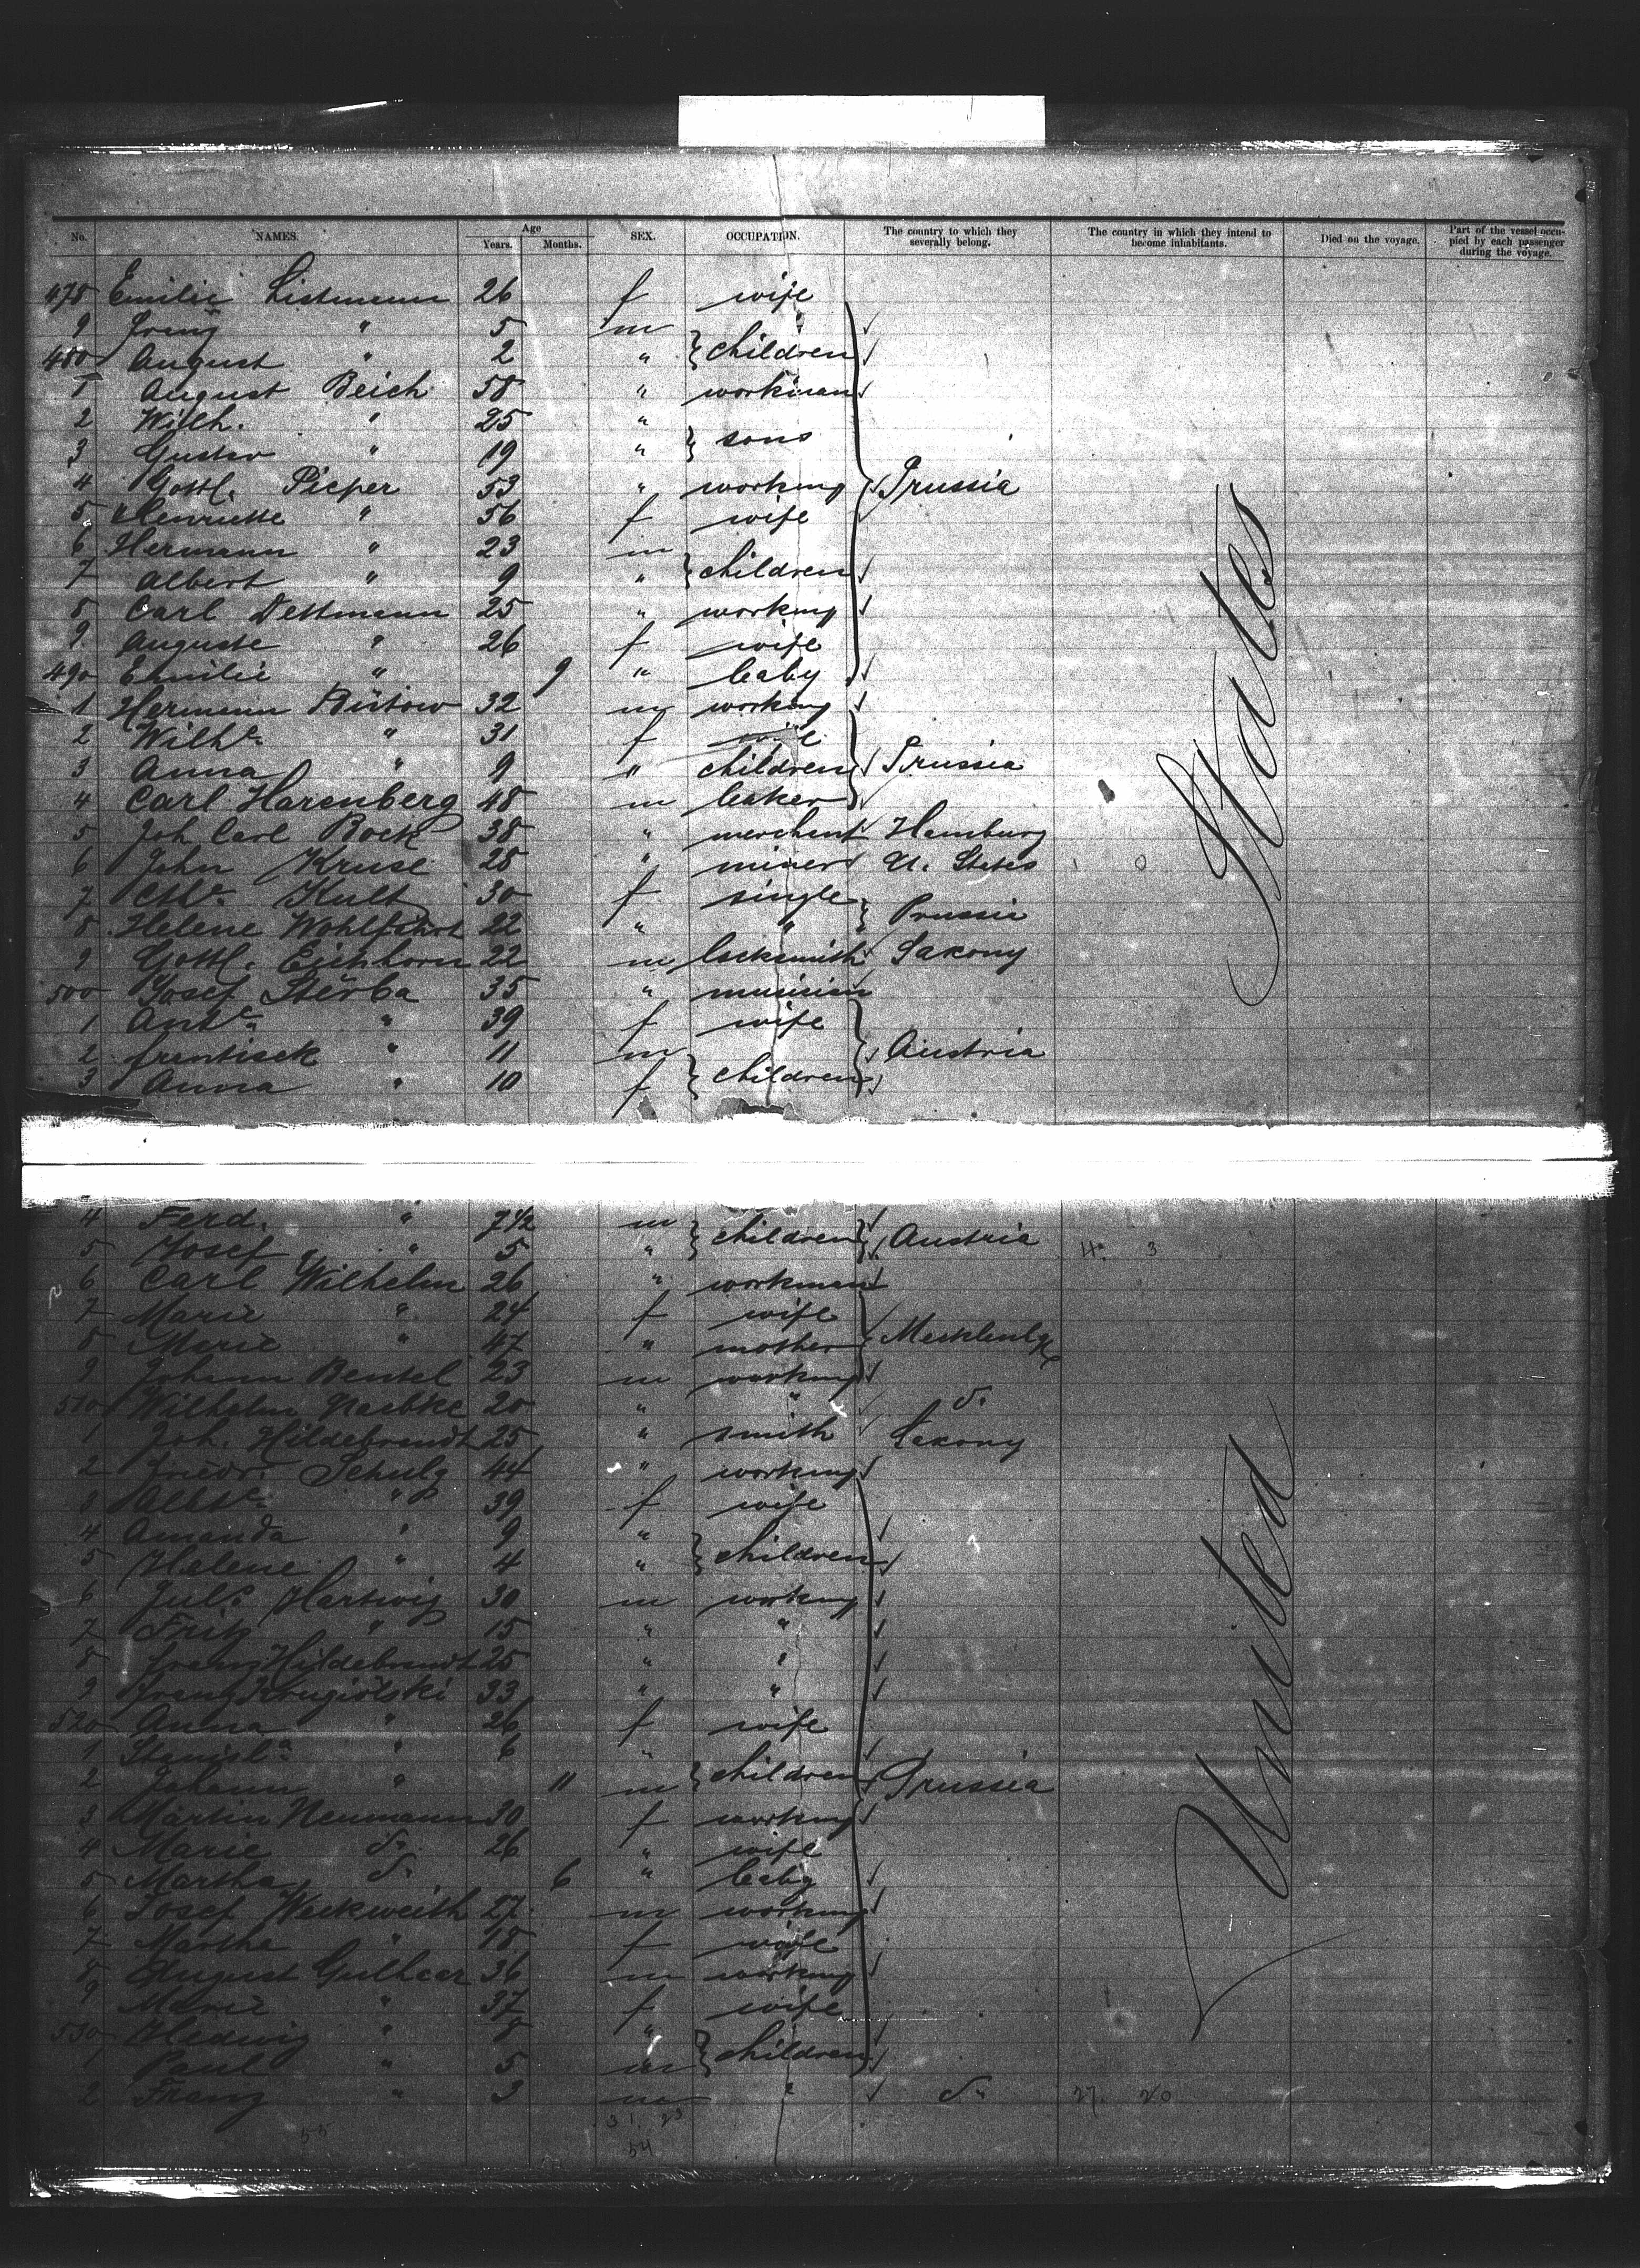 No. NAMES. Age Years. Months. SEX. OCCUPATION. The country to which they severally belong. The country in which they intend to become inhabitants. Died on the voyage. Part of the vessel occupied by each passenger during the voyage.
478 Emilie Listmann 26 f wife
9 Franz " 5 m
480 August " 2 " } children
1 August Beich 58 " workman
2 Wilh. " 25 "
3 Gustav " 19 " } sons
4 Gottl. Pieper 53 " workmg Prussia
5 Henriette " 56 f wife
6 Hermann " 23 m
7 Albert " 9 " } children
8 Carl Dettmann 25 " workmg
9 Auguste " 26 f wife
490 Emilie " 9 " baby
1 Hermann Bütow 32 m workmg
2 Wilhe. " 31 f wife
3 Anna " 9 " children Prussia
4 Carl Harenberg 48 m baker
5 Joh Carl Bock 38 " merchant Hamburg
6 John Kruse 28 " miner U. States
7 Kult 30 f single
8 Helene Wohlfahrt 22 " " } Prussia
9 Gottl. Eichhorn 22 m locksmith Saxony
500 Josef Stërba 35 " musician
1 Ante. " 39 f wife
2 frantisek " 11 m Austria
3 Anna " 10 f } children
States
4 Ferd. " 7 1/2 m
5 Josef " 5 " } children Austria 4. 3
6 Carl Wilhelm 26 " workman
7 Marie " 24 f wife
8 Marie " 47 " mother Mecklenbg
9 Johann Bentel 23 m workmg
510 Wilhelm 20 " " do
1 Joh. Hildebrandt 25 " smith Saxony
2 Friedr. Schulz 44 " workmg
3 Albte. " 39 f wife
4 Amanda " 9 "
5 Helene " 4 " } children
6 Juls. Hartwig 30 m workmg
7 Fritz " 15 " "
8 Franz Hildebrandt 25 " "
9 Franz 33 " "
520 Anna " 26 f wife
1 Stanisla " 6 "
2 Johann " 11 m } children Prussia
3 Martin Neumann 30 f workmg
4 Marie do 26 " wife
5 Martha do 6 " baby
6 Josef Weckwerth 27 m workmg
7 Martha " 18 f wife
8 August 36 m workmg
9 Marie " 37 f wife
530 Hedwig " 8 "
1 Paul " 5 m } children
2 Franz " 3 m " do 27. 20
United
55 31. 23
54